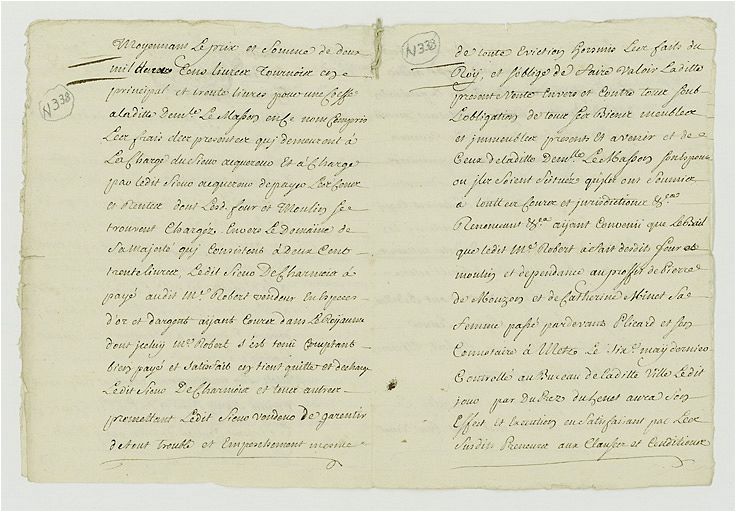 Moyennant Le prix et Somme de deux
mil Trois Cens livres Tournois en
principal et trente livres pour une Coeffe
a laditte Dem.lle Le Masson en ce non Compris
Les frais des presentes qui demeurent à
La Charge du Sieur acquereur et à Charge
par ledit Sieur acquereur de payer Les Cens
et Rentes dont Lesd. four et Moulin Se
trouvent Chargez Envers Le Domaine de
Sa Majesté qui Consistent à Deux Cent
trente livres, Ledit Sieur De Charnoix à
payé audit M.e Robert vendeur En Especes
d'or et d'argent ayant Cours dans Le Royaume
dont jceluy M.e Robert s'est tenu Comptant
bien payé et Satisfait en tient quitte et decharge
Ledit Sieur De Charnoix et tous autres
promettant Ledit Sieur vendeur De garentir
de tout trouble et Empechement mesme
N 338
N 338
de toute Eviction hormis Les faits du
Roy, et s'oblige de faire Valoir Laditte
presente Vente Envers et Contre tous sous
L'obligation de tous Ses Biens meubles
et immeubles presents et avenir et de
Ceux de laditte Dem.lle Le Masson
ou jls Soient Scituéz qu'ils ont Soumis
à toutes Cours et jurisdictions &.ca
Renonçant &.ca ayant Convenu que Le Bail
que ledit M.e Robert a fait desdits four et
moulin et dependance au proffit de Pierre
de Mouzon et de Catherine Minet Sa
Femme passé pardevant Plicard et Son
Connotaire à Metz Le Six.e may dernier
Controllé au Bureau de laditte Ville Ledit
jour par aura Son
Effect et Execution en Satisfaisant par Les
Susdits Preneurs aux Clauses et Conditions